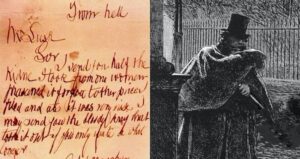 From hell
Mr Lusk
Sor
I send you half the
Kidne I took from one women
prasarved it for you tother piece
fried and ate it was very nise I
may send you the bloody knif that
took it out if you only wate a whil
longer